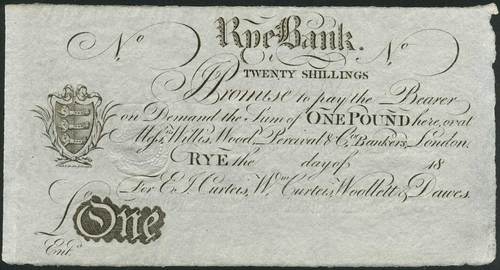 Rye Bank.
No No
TWENTY SHILLINGS
Promise to pay the Bearer
on Demand the Sum of ONE POUND here, or at
Messrs. Willis, Wood, Percival & Co. Bankers, London.
RYE the day of 18
For E. J. Curteis, Wm. Curteis, Woollett & Dawes.
£ One
Entd.